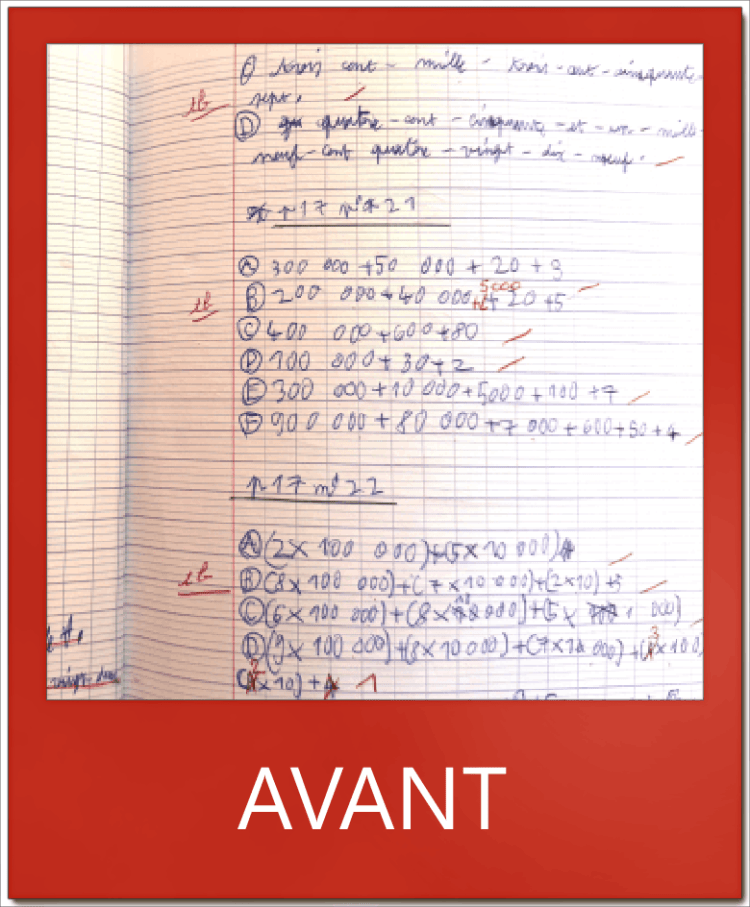 trois cent - mille - trois - cent - cinquante
sept.
tb
D quatre - cent - cinquante - et - un - mille
neuf - cent quatre - vingt - dix - neuf.
p 17 n° 21
A 300 000 + 50 000 + 20 + 3
tb
5000
B 200 000 + 40 000 + 20 + 5
C 400 000 + 600 + 80
D 100 000 + 30 + 2
E 300 000 + 10 000 + 5000 + 100 + 7
F 900 000 + 80 000 + 7 000 + 600 + 50 + 4
p 17 n° 22
A (2 x 100 000) + (5 x 10 000)
tb
B (8 x 100 000) + (7 x 10 000) + (2 x 10) + 5
C (6 x 100 000) + (8 x 000) + (5 x 1 000)
D (9 x 100 000) + (8 x 10 000) + (7 x 1 000) + (3 x 100)
x 10) + 1
AVANT